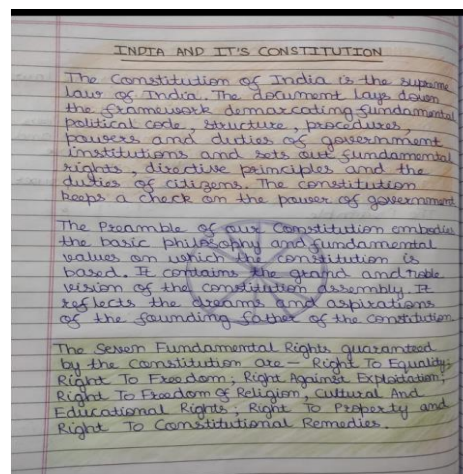 INDIA AND IT'S CONSTITUTION
The Constitution of India is the supreme
law of India. The document lays down
the framework demarcating fundamental
political code, structure, procedures,
powers and duties of government
institutions and sets out fundamental
rights, directive principles and the
duties of citizens. The constitution
keeps a check on the power of government
The Preamble of our Constitution embodies
the basic philosophy and fundamental
values on which the constitution is
based. It contains the grand and noble
vision of the constitution assembly. It
reflects the dreams and aspirations
of the founding father of the constitution
The Seven Fundamental Rights guaranteed
by the constitution are - Right To Equality;
Right To Freedom; Right Against Exploitation;
Right To Freedom Of Religion, Cultural And
Educational Rights; Right To Property and
Right To Constitutional Remedies.